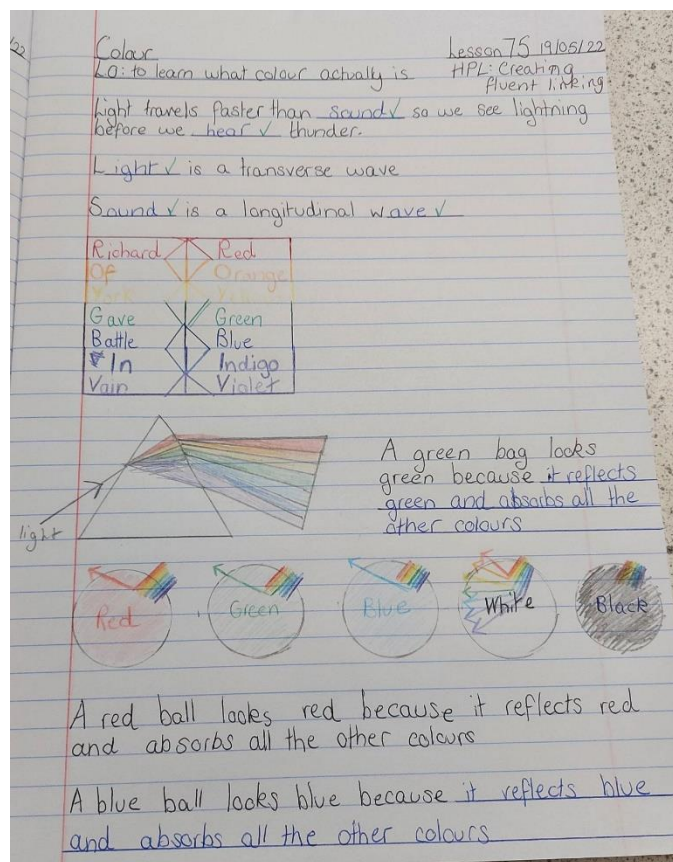 Colour
Lesson 75 19/05/22
LO: to learn what colour actually is
HPL: Creating
fluent linking
Light travels faster than sound✓ so we see lightning
before we hear ✓ thunder.
Light ✓ is a transverse wave
Sound ✓ is a longitudinal wave ✓
Richard Red
Of Orange
York Yellow
Gave Green
Battle Blue
In Indigo
Vain Violet
light
A green bag looks
green because it reflects
green and absorbs all the
other colours
Red Green Blue White Black
A red ball looks red because it reflects red
and absorbs all the other colours
A blue ball looks blue because it reflects blue
and absorbs all the other colours